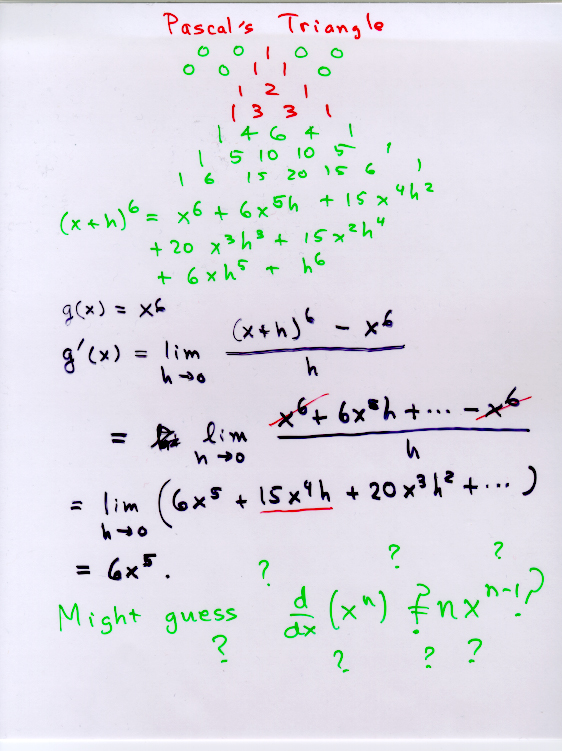 Pascal's Triangle
0 0 1 0 0
0 0 1 1 0
1 2 1
1 3 3 1
1 4 6 4 1
1 5 10 10 5 1
1 6 15 20 15 6 1
(x+h)⁶ = x⁶ + 6x⁵h + 15x⁴h²
+ 20 x³h³ + 15x²h⁴
+ 6xh⁵ + h⁶
g(x) = x⁶
g'(x) = lim h→0 ((x+h)⁶ − x⁶)/h
= lim h→0 (x⁶ + 6x⁵h + ··· − x⁶)/h
= lim h→0 (6x⁵ + 15x⁴h + 20x³h² + ···)
= 6x⁵.
? ? ?
Might guess d/dx (xⁿ) = nxⁿ⁻¹?
? ? ? ?